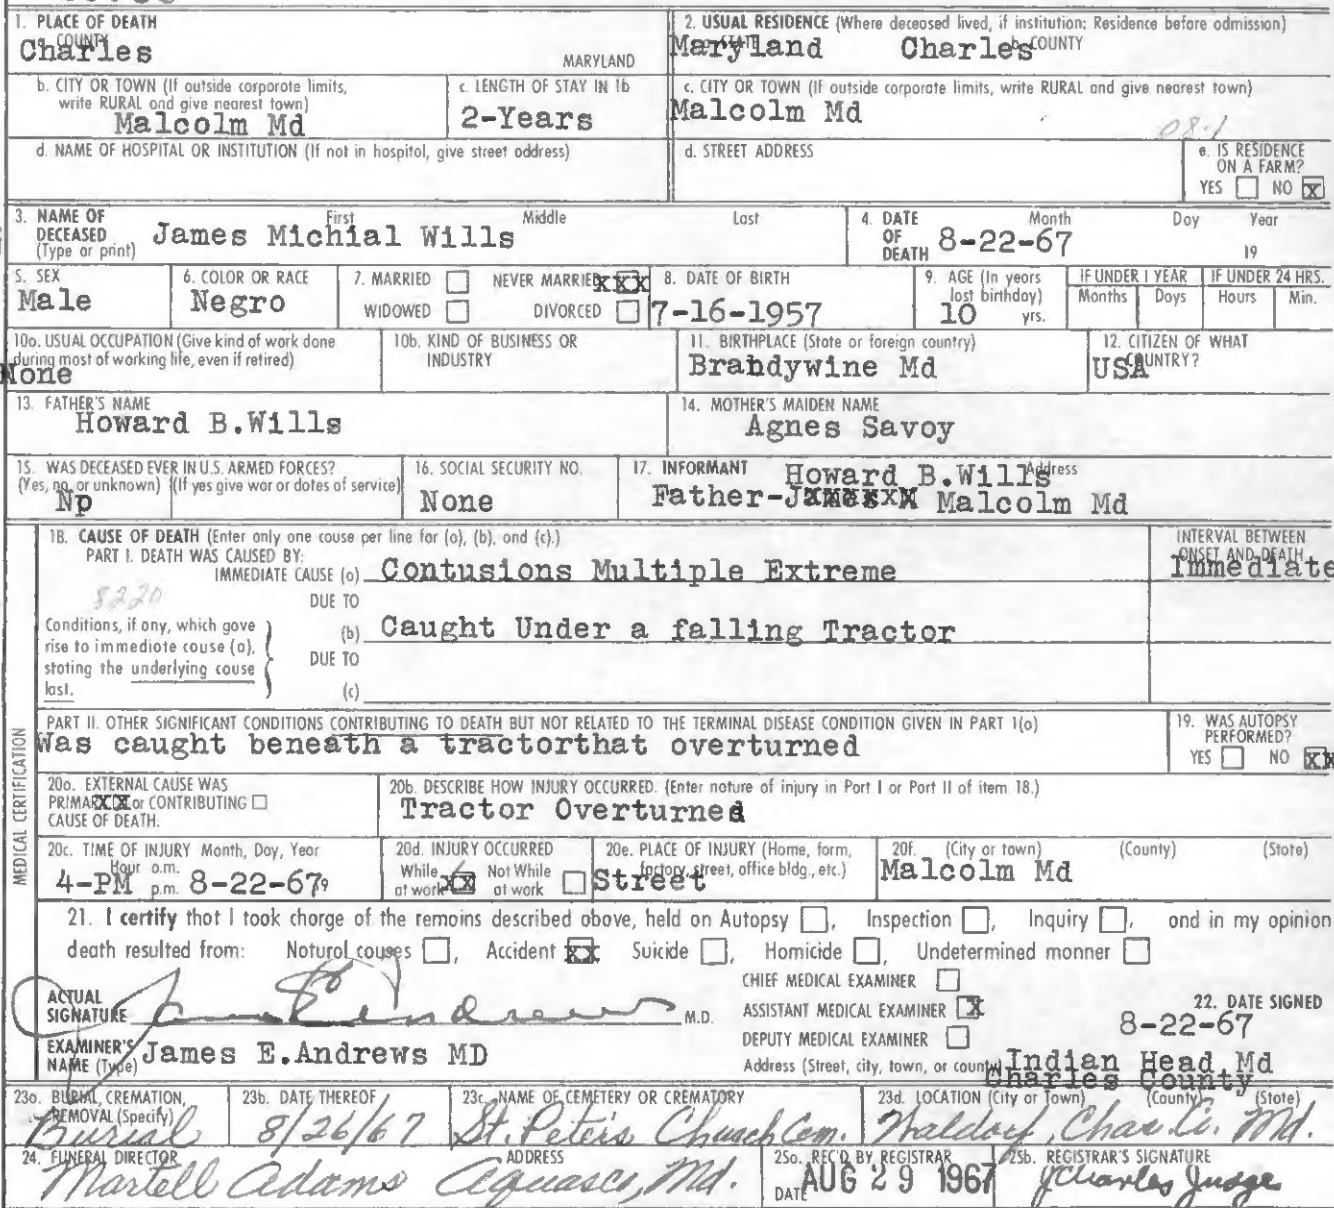 1. PLACE OF DEATH
COUNTY
Charles
MARYLAND
2. USUAL RESIDENCE (Where deceased lived, if institution: Residence before admission)
STATE b. COUNTY
Maryland Charles
b. CITY OR TOWN (If outside corporate limits,
write RURAL and give nearest town)
Malcolm Md
c. LENGTH OF STAY IN 1b
2-Years
c. CITY OR TOWN (If outside corporate limits, write RURAL and give nearest town)
Malcolm Md
08-1
d. NAME OF HOSPITAL OR INSTITUTION (If not in hospital, give street address)
d. STREET ADDRESS
e. IS RESIDENCE
ON A FARM?
YES NO X
3. NAME OF
DECEASED
(Type or print)
First Middle Last
James Michial Wills
4. DATE
OF
DEATH
Month Day Year
8-22-67
19
5. SEX
Male
6. COLOR OR RACE
Negro
7. MARRIED NEVER MARRIED XXX
WIDOWED DIVORCED
8. DATE OF BIRTH
7-16-1957
9. AGE (In years
last birthday)
10 yrs.
IF UNDER 1 YEAR
Months Days
IF UNDER 24 HRS.
Hours Min.
10a. USUAL OCCUPATION (Give kind of work done
during most of working life, even if retired)
None
10b. KIND OF BUSINESS OR
INDUSTRY
11. BIRTHPLACE (State or foreign country)
Brahdywine Md
12. CITIZEN OF WHAT
COUNTRY?
USA
13. FATHER'S NAME
Howard B.Wills
14. MOTHER'S MAIDEN NAME
Agnes Savoy
15. WAS DECEASED EVER IN U.S. ARMED FORCES?
(Yes, no, or unknown) (If yes give war or dates of service)
Np
16. SOCIAL SECURITY NO.
None
17. INFORMANT Address
Howard B.Wills
Father- Malcolm Md
MEDICAL CERTIFICATION
18. CAUSE OF DEATH (Enter only one cause per line for (a), (b), and (c).)
PART I. DEATH WAS CAUSED BY:
IMMEDIATE CAUSE (a) Contusions Multiple Extreme
INTERVAL BETWEEN
ONSET AND DEATH
Immediate
8220
DUE TO
Conditions, if any, which gave
rise to immediate cause (a),
stating the underlying cause
last.
(b) Caught Under a falling Tractor
DUE TO
(c)
PART II. OTHER SIGNIFICANT CONDITIONS CONTRIBUTING TO DEATH BUT NOT RELATED TO THE TERMINAL DISEASE CONDITION GIVEN IN PART 1(a)
Was caught beneath a tractorthat overturned
19. WAS AUTOPSY
PERFORMED?
YES NO XX
20a. EXTERNAL CAUSE WAS
PRIMARY XX or CONTRIBUTING
CAUSE OF DEATH.
20b. DESCRIBE HOW INJURY OCCURRED. (Enter nature of injury in Part I or Part II of item 18.)
Tractor Overturned
20c. TIME OF INJURY Month, Day, Year
Hour a.m.
p.m.
4-PM 8-22-67
20d. INJURY OCCURRED
While at work XX Not While at work
20e. PLACE OF INJURY (Home, farm,
factory, street, office bldg., etc.)
Street
20f. (City or town) (County) (State)
Malcolm Md
21. I certify that I took charge of the remains described above, held on Autopsy , Inspection , Inquiry , and in my opinion
death resulted from: Natural causes , Accident XX Suicide , Homicide , Undetermined manner
ACTUAL
SIGNATURE James E Andrews M.D.
CHIEF MEDICAL EXAMINER
ASSISTANT MEDICAL EXAMINER X
DEPUTY MEDICAL EXAMINER
22. DATE SIGNED
8-22-67
EXAMINER'S
NAME (Type) James E.Andrews MD
Address (Street, city, town, or county) Indian Head Md
Charles County
23a. BURIAL, CREMATION,
REMOVAL (Specify)
Burial
23b. DATE THEREOF
8/26/67
23c. NAME OF CEMETERY OR CREMATORY
St. Peters Church Cem.
23d. LOCATION (City or Town) (County) (State)
Waldorf, Chas. Co. Md.
24. FUNERAL DIRECTOR ADDRESS
Martell Adams Aquasco, Md.
25a. REC'D BY REGISTRAR
DATE AUG 29 1967
25b. REGISTRAR'S SIGNATURE
J Charles Judge